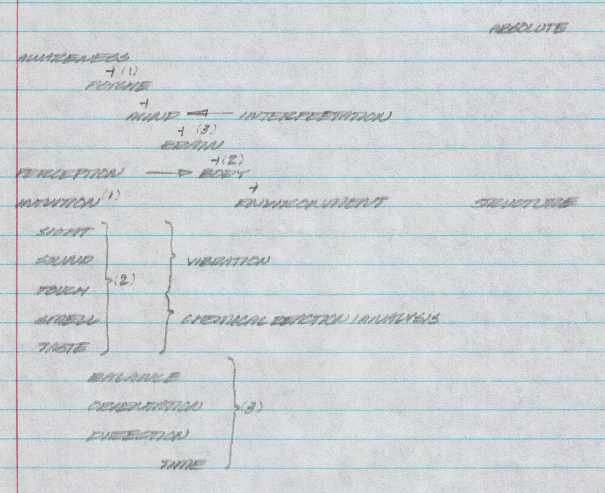 ABSOLUTE
AWARENESS
+ (1)
PSYCHE
+
MIND ← INTERPRETATION
+ (3)
BRAIN
+ (2)
PERCEPTION → BODY
+
INTUITION (1) ENVIRONMENT STRUCTURE
SIGHT
SOUND } VIBRATION
TOUCH } (2)
SMELL } CHEMICAL REACTION / ANALYSIS
TASTE
BALANCE
ORIENTATION } (3)
DIRECTION
TIME